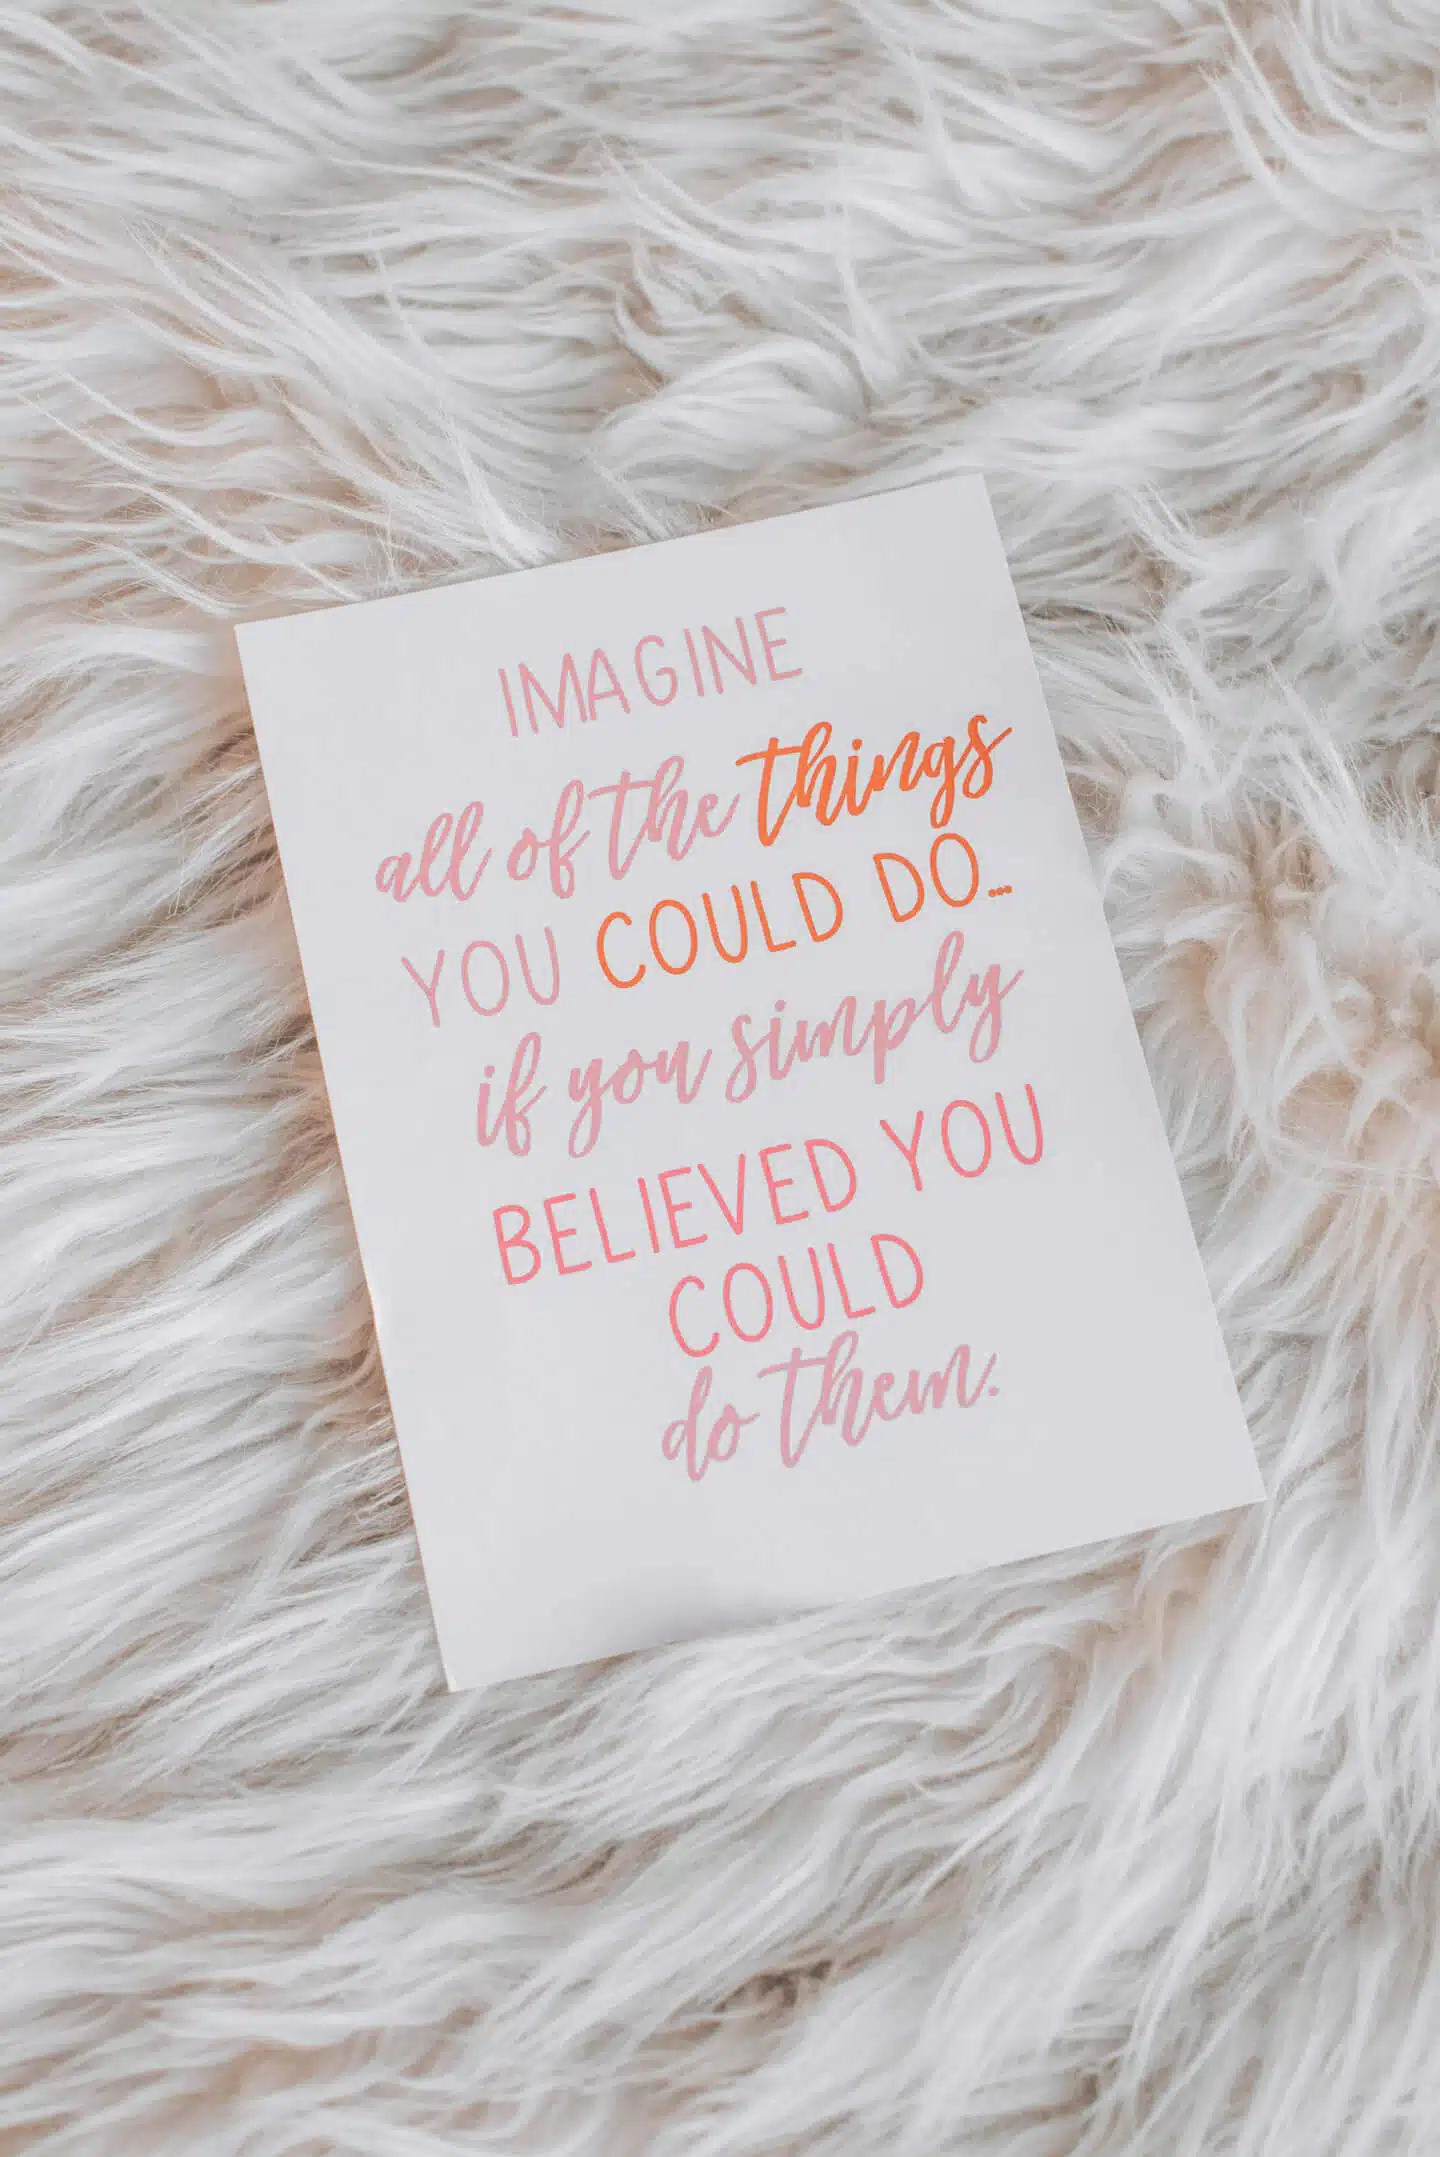 IMAGINE
all of the things
YOU COULD DO...
if you simply
BELIEVED YOU
COULD
do them.